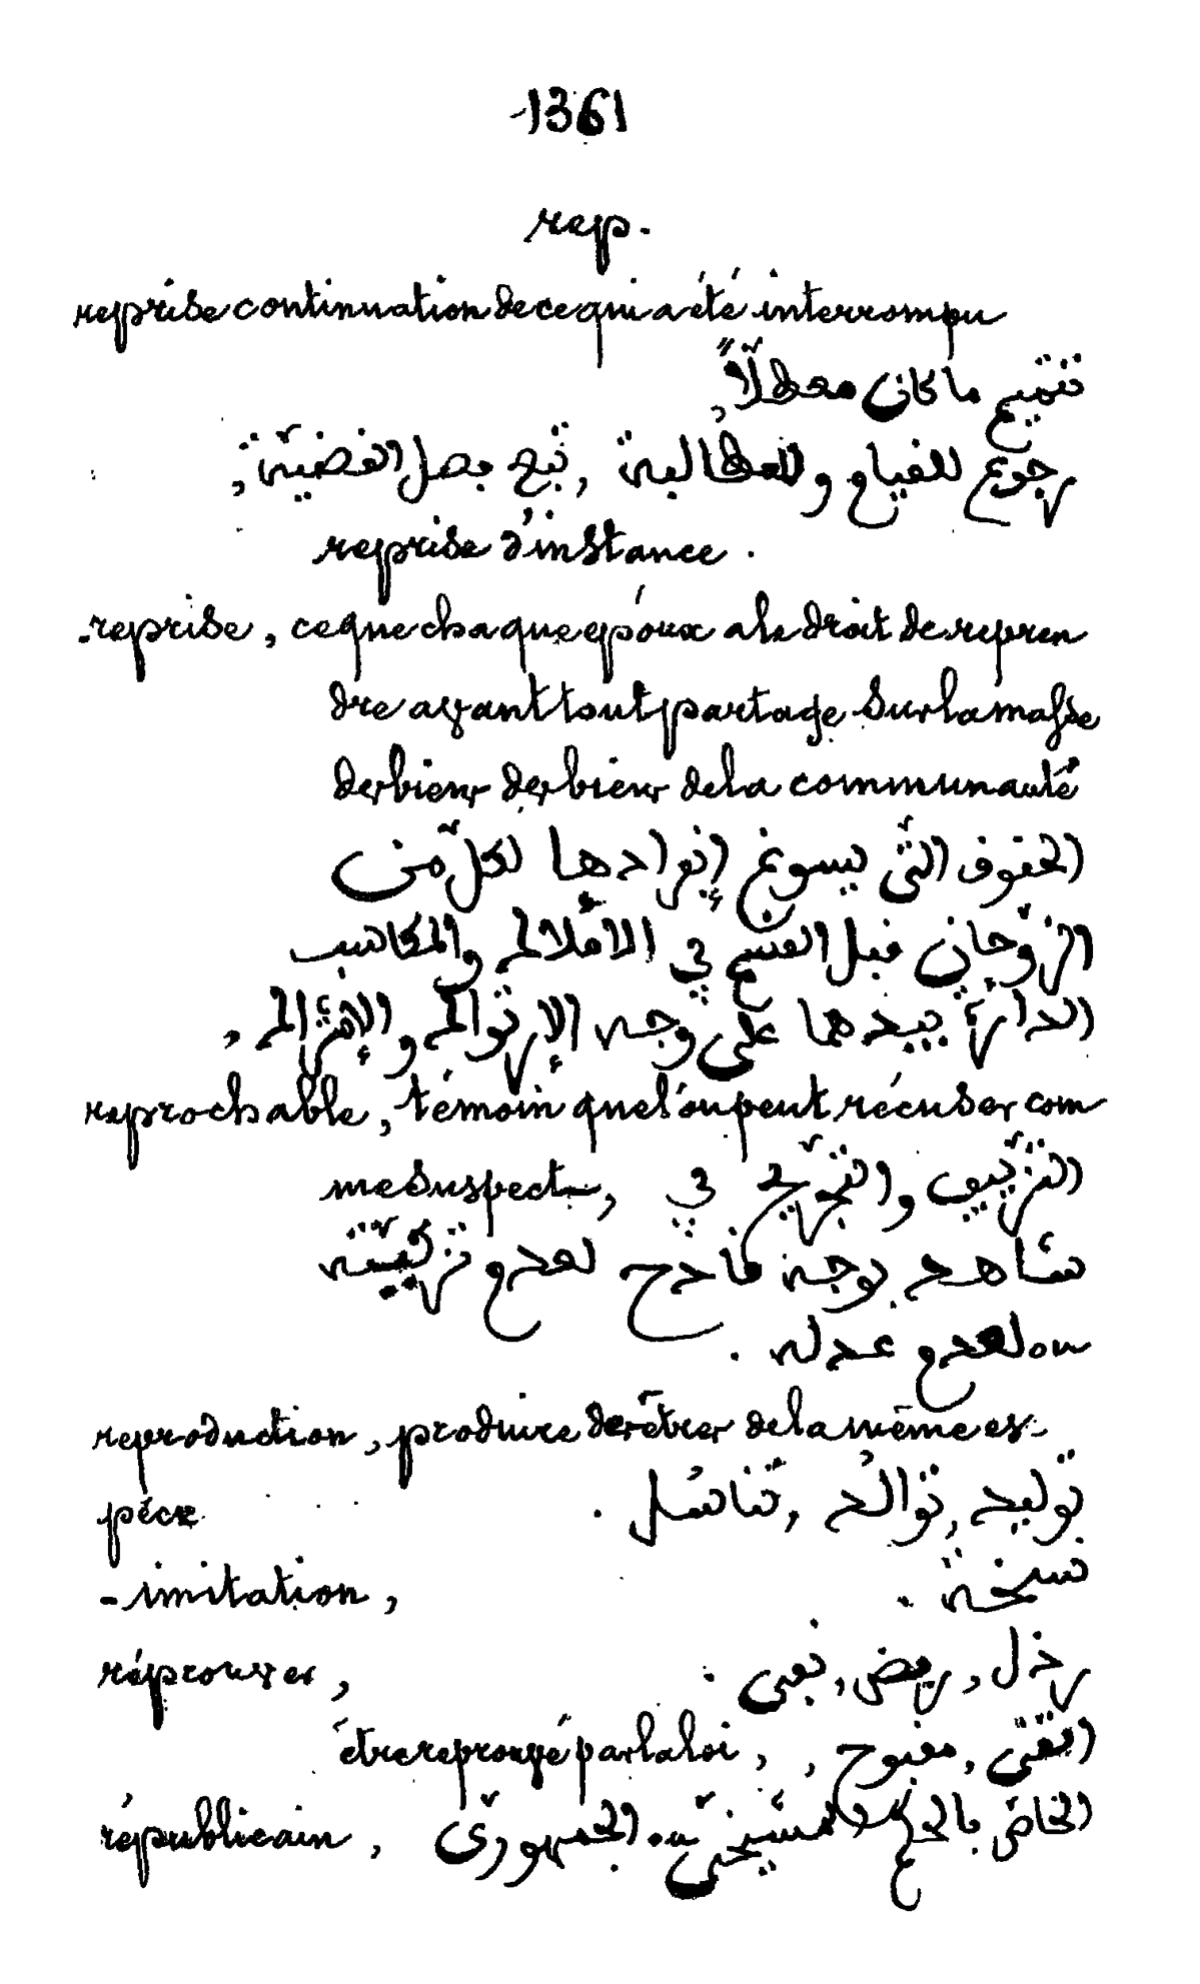 1361
rep.
reprise continuation de ce qui a été interrompu
تتميم ما كان معطلاً,
رجوع للقيام وللمطالبة , تبع بصل القضيّة,
reprise d'instance.
- reprise, ce que chaque époux a le droit de repren
dre avant tout partage sur la masse
des biens des biens de la communauté
الحقوق التّي يسوغ إنفرادها لكلّ من
الزوّجان قبل القسم في الأملاك والمكاسب
بيدهما على وجه الإرتواك والإشتراك,
reprochable, témoin que l'on peut récuser com
me suspect, التزّييف والتجّريح في
شاهد بوجه قادح لعدم تزكيّته
ou لعدم عدله.
reproduction, produire des êtres de la même es-
pèce توليد, توالد, تناسل.
- imitation, نسخة.
réprouver, رذل, رفض, نفى.
être réprouvé par la loi, مقبوح, انتفى
républicain, الخاصّ بالحكم المشيخيّ ou الجمهوريّ